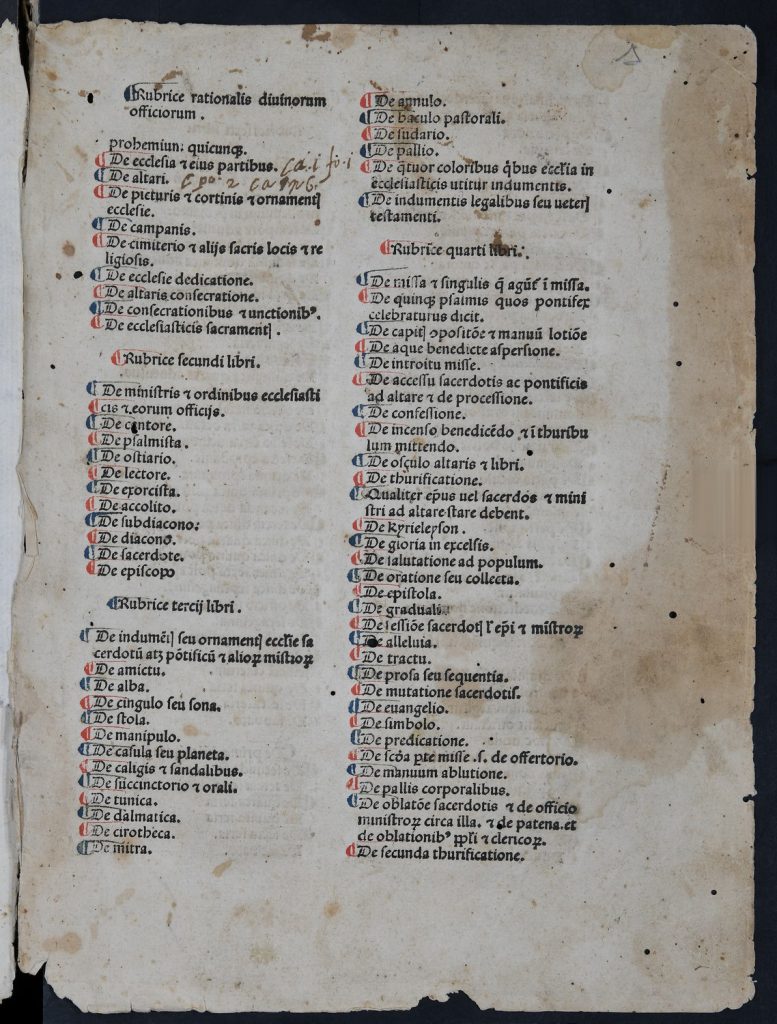 Rubrice rationalis diuinorum
officiorum .
prohemium: quicunqꝫ.
De ecclesia ⁊ eius partibus. ca. i fo. 1
De altari.
De picturis ⁊ cortinis ⁊ ornamentꝭ
ecclesie.
De campanis.
De cimiterio ⁊ alijs sacris locis ⁊ re
ligiosis.
De ecclesie dedicatione.
De altaris consecratione.
De consecrationibus ⁊ unctionibꝰ.
De ecclesiasticis sacramentꝭ .
Rubrice secundi libri.
De ministris ⁊ ordinibus ecclesiasti
cis ⁊ eorum officijs.
De cantore.
De psalmista.
De ostiario.
De lectore.
De exorcista.
De accolito.
De subdiacono:
De diacono.
De sacerdote.
De episcopo
Rubrice tercij libri .
De indumētꝭ seu ornamentꝭ ecclie sa
cerdotū atqꝫ pōtificū ⁊ alioꝝ mistroꝝ
De amictu.
De alba.
De cingulo seu sona.
De stola.
De manipulo.
De casula seu planeta.
De caligis ⁊ sandalibus.
De succinctorio ⁊ orali.
De tunica.
De dalmatica.
De cirotheca.
De mitra.
De annulo.
De baculo pastorali.
De sudario.
De pallio.
De q̈tuor coloribus q̇bus eccl̄ia in
ecclesiasticis utitur indumentis.
De indumentis legalibus seu ueterꝭ
testamenti.
Rubrice quarti libri.
De missa ⁊ singulis q̄ agūt̄ ī missa.
De quinqꝫ psalmis quos pontifex
celebraturus dicit.
De capitꝭ opositōe ⁊ manuū lotiōe
De aque benedicte aspersione.
De introitu misse.
De accessu sacerdotis ac pontificis
ad altare ⁊ de processione.
De confessione.
De incenso benedicēdo ⁊ ī thuribu
lum mittendo.
De osculo altaris ⁊ libri.
De thurificatione.
Qualiter ep̄us uel sacerdos ⁊ mini
stri ad altare stare debent.
De kyrieleyson .
De gloria in excelsis.
De salutatione ad populum.
De oratione seu collecta.
De epistola.
De graduali.
De sessiōe sacerdotꝭ l' ep̄i ⁊ mīstroꝝ
De alleluia.
De tractu.
De prosa seu sequentia.
De mutatione sacerdotis.
De euangelio.
De simbolo.
De predicatione.
De scōa ꝑte misse .s. de offertorio.
De manuum ablutione.
De pallis corporalibus.
De oblatōe sacerdotis ⁊ de officio
ministroꝝ circa illa. ⁊ de patena. et
de oblationibꝰ ppl̄i ⁊ clericoꝝ.
De secunda thurificatione.